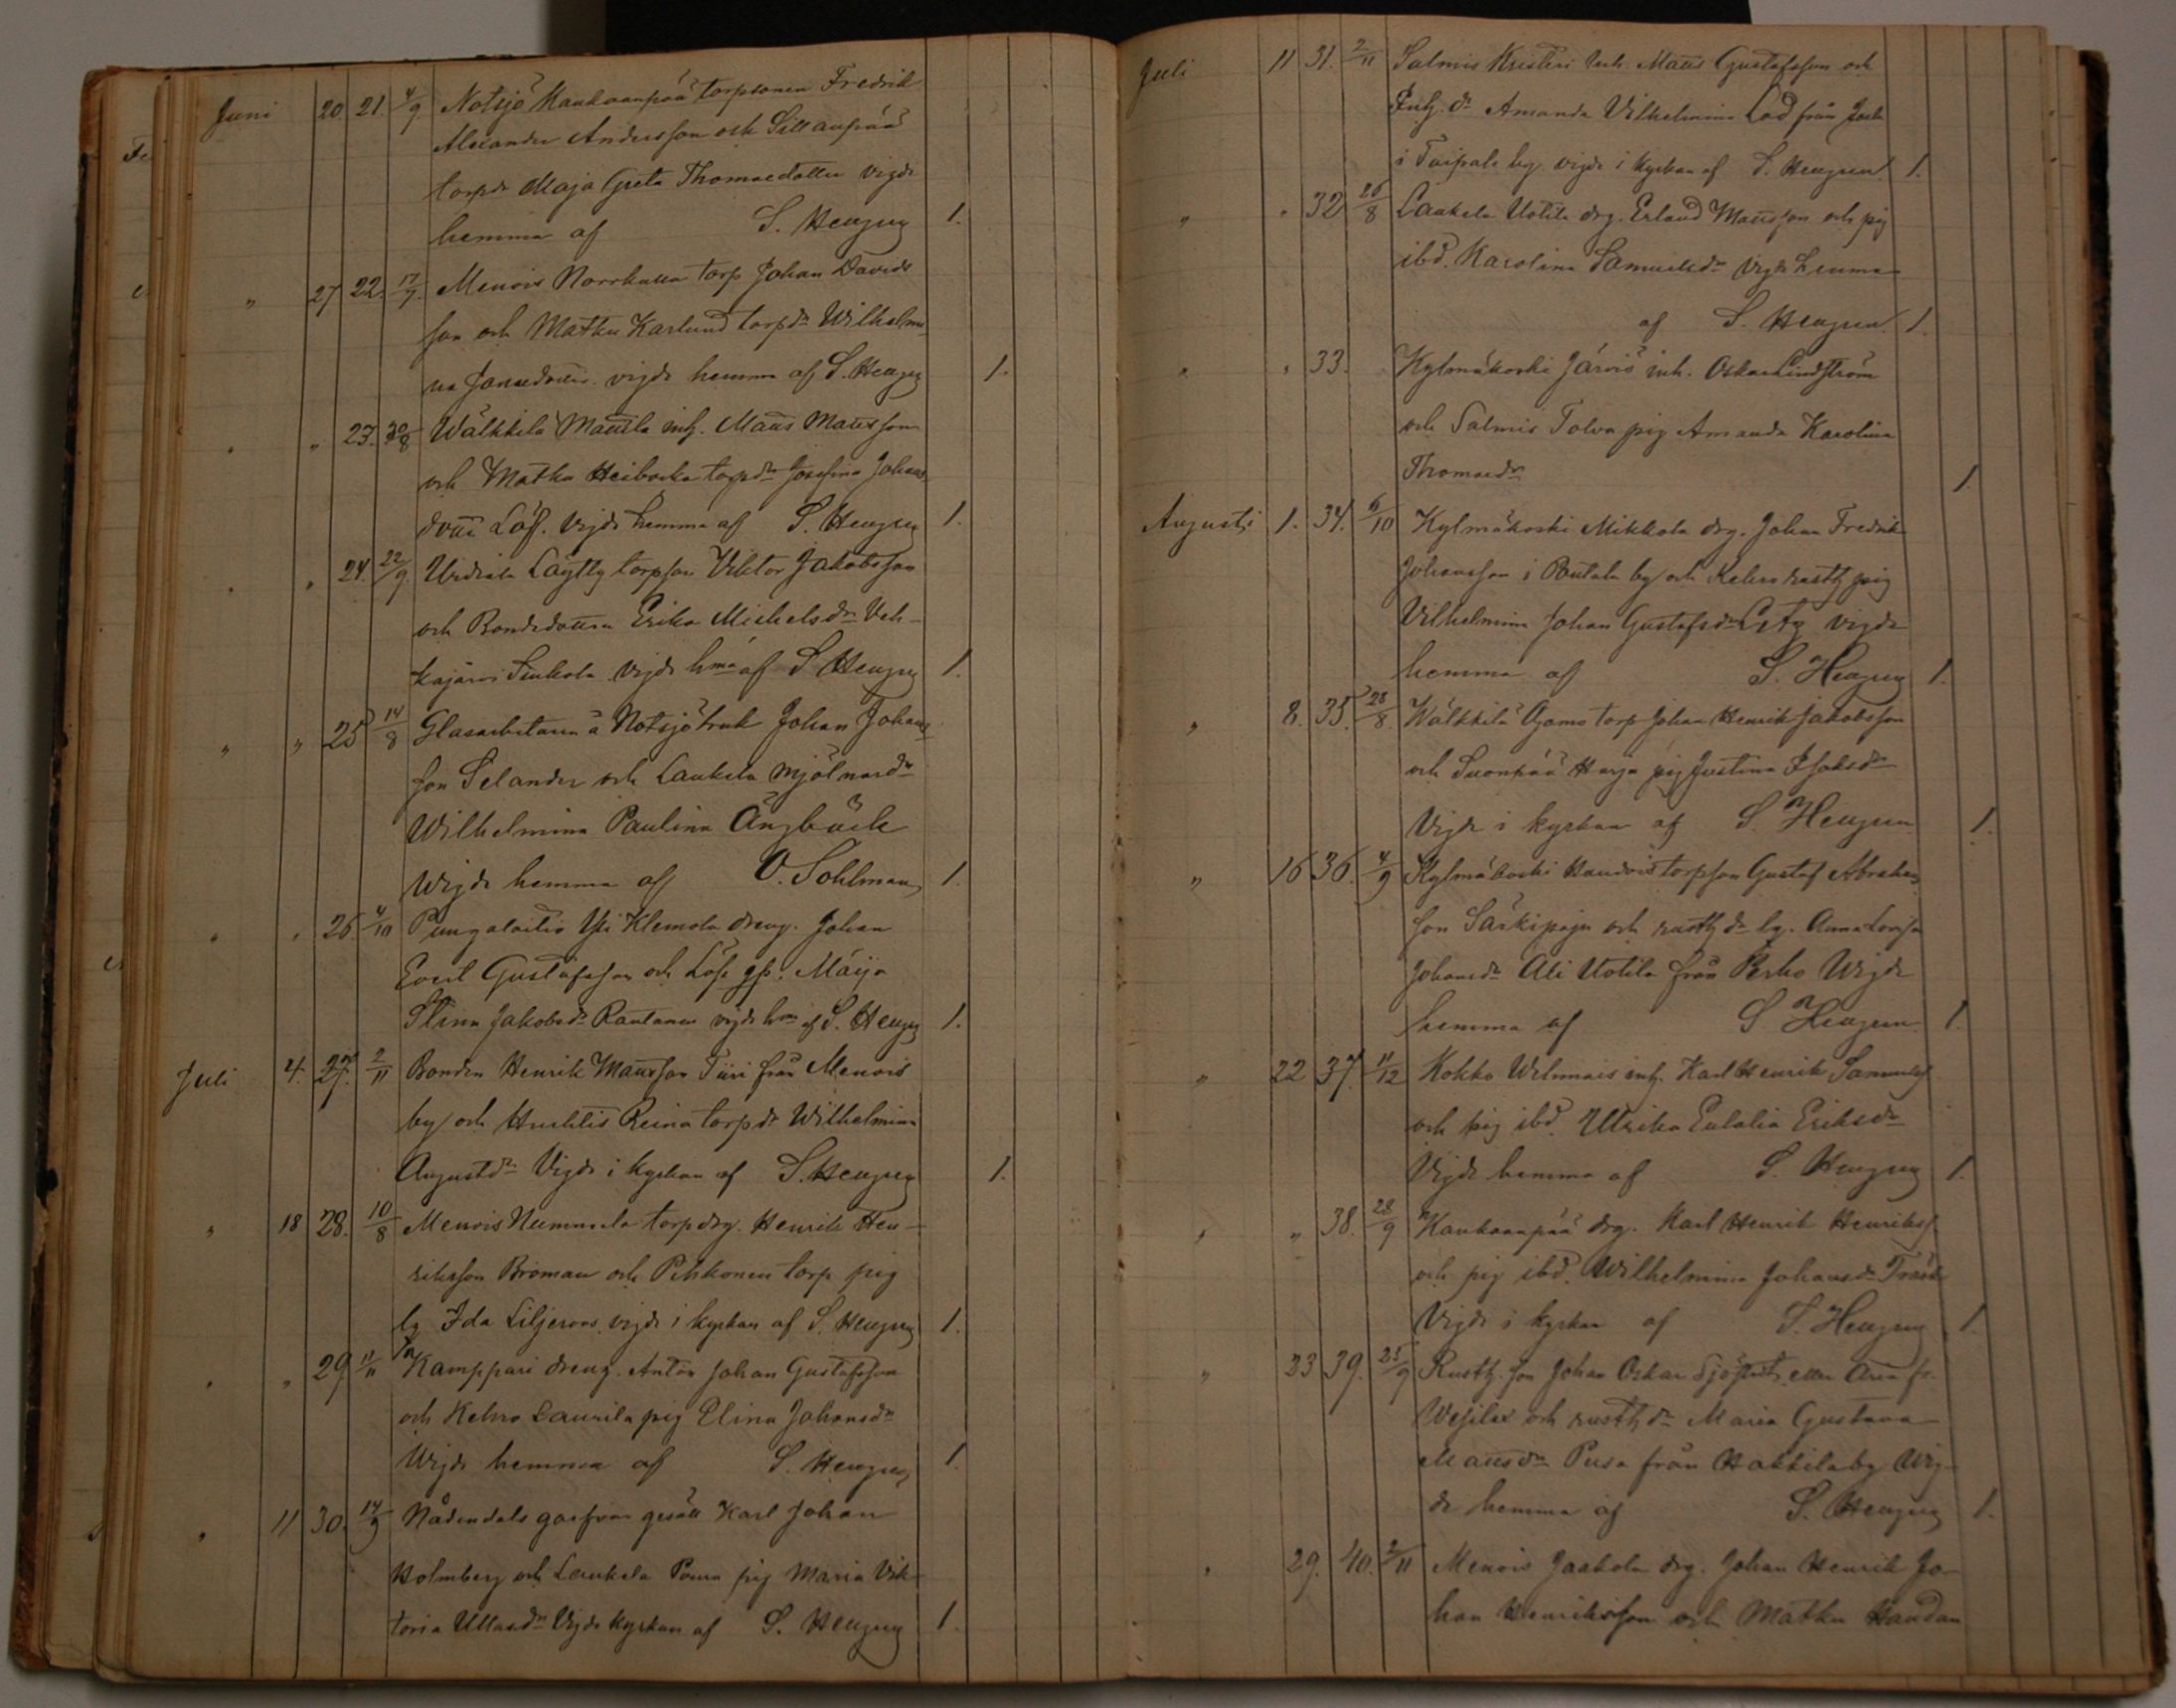 Juni 20. 21. 4/9 Notsjö Kankaanpää torpsonen Fredrik
Alexander Andersson och Sillanpää
torpdr Maja Greta Thomasdotter vigde
hemma af S. Heugren 1.
" 27 22. 17/9. Menois Norrkulla torp Johan Davids
son och Matku Karlund torpdr Wilhelmi
na Jansedotter. vigde hemma af S. Heugren 1.
" " 23. 30/8 Wälkkilä Mattila inh. Matts Mattsson
och Matku torpdr Josefina Johans
dott Löf. Vigde hemma af S. Heugren 1.
" " 24. 22/9. Urdiala Läylly torpson Viktor Jakobsson
och Bondedottern Erika Michelsdr Veh-
kajärvi Sinkola vigde hma af S Heugren 1.
" " 25 14/8 Glasarbetaren å Notsjö bruk Johan Johans
son Selander och Laukela Mjölnardr
Wilhelmina Paulina Ängbäck
Wigde hemma af O. Sohlman 1.
" " 26. 4/10 Pungalaitio Yli Klemola dreng. Johan
Evert Gustafsson och Lösa qp. Maija
Stina Jakobsdr Rautanen vigde hma af S. Heugren 1.
Juli 4. 27. 2/11 Bonden Henrik Mattsson Tiiri från Menois
by och Huhtis Reina torpdr Wilhelmina
Augustdr Vigde i Kyrkan af S. Heugren 1.
" 18 28. 10/8 Menois Nummela torpdrg. Henrik Hen-
riksson Broman och Pihkonen torp pig
lg Ida Liljeroos vigde i kyrkan af S. Heugren 1.
" " 29 11/11 Kamppari dreng. Anton Johan Gustafsson
och Kehro Laurila pig Elina Johansdr
Wigde hemma af S. Heugren 1.
" 11 30. 14/9 Nådendals garfvar gesäll Karl Johan
Holmberg och Laukela pig Maria Vik-
toria Vigde Kyrkan af S. Heugren 1.
Juli 11 31. 2/11 Salmis Kristeri inh. Matts Gustafsson och
Inh. dr Amanda Vilhelmina Lod från
i Taipale by vigde i kyrkan af S. Heugren. 1.
" " 32 26/8 Laukela Uotila drg. Erland Mattsson och pig
ibd. Karolina Samuelsdr vigde hemma
af S. Heugren. 1.
" " 33. Kylmäkoski Järvis inh. Oskar Lindström
och Salmis Tolva pig Amanda Karolina
Thomasdr 1
Augusti 1. 34. 6/10 Kylmäkoski Mikkola drg. Johan Fredrik
Johansson i Pentala by och Kehro rusth pig
Vilhelmina Johan Gustafsdr vigde
hemma af S. Heugren 1.
" 8. 35. 28/8. Wälkkilä Ojamo torp Johan Henrik Jakobsson
och Suonpää Harja pig Justina Isaksdr
Vigde i kyrkan af S. Heugren 1.
" 15 36. 4/9 Kylmäkoski torpson Gustaf Abrahams
son Särkipaju och rusth dr lg. Anna Lovisa
Johansdr Ali Uotila från Perho Wigde
hemma af S. Heugren. 1.
" 22 37. 11/12 Kokko inh. Karl Henrik Samuelss
och pig ibd. Ulrika Eulalia Eriksdr
Vigde hemma af S. Heugren 1.
" " 38. 28/9 Kankaanpää drg. Karl Henrik Henrikss.
och pig ibd. Wilhelmina Johansdr
Vigde i kyrkan af S. Heugren 1.
" 23 39. 25/9 Rusth. son Johan Oskar eller fr.
Wesilax och rusth dr Maria Gustava
Mattsdr Pusa från Hakkila by Wig-
de hemma af S. Heugren 1.
" 29. 40. 2/11 Menois Jaakola drg. Johan Henrik Jo-
han Henriksson och Matku